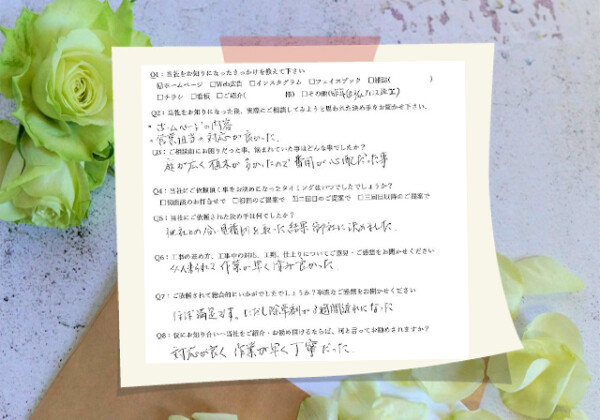 Q1：当社をお知りになったきっかけを教えて下さい
☑ホームページ □Web広告 □インスタグラム □フェイスブック □雑誌( )
□チラシ □看板 □ご紹介( 様) □その他(
Q2：当社をお知りになった後、実際にご相談してみようと思われた決め手をお聞かせ下さい。
・ホームページの内容
・営業担当の対応が良かった。
Q3：ご相談前にお困りだった事、悩まれていた事はどんな事でしたか？
庭が広く植木が多かったので費用が心配だった事
Q4：当社にご依頼頂く事をお決めになったタイミングはいつでしたでしょうか？
□初面談のお打合せで □初回のご提案で ☑二回目のご提案で □三回目以降のご提案で
Q5：当社にご依頼された決め手は何でしたか？
他社との合見積りを取った結果御社に決めました。
Q6：工事の進め方、工事中の対応、工期、仕上りについてご意見・ご感想をお聞かせください
作業が早く済み良かった。
Q7：ご依頼されて総合的にいかがでしたでしょうか？率直なご感想をお聞かせください
ほぼ満足です。ただし除草剤が3週間遅れになった
Q8：仮にお知り合いへ当社をご紹介・お勧め頂けるならば、何と言ってお勧めされますか？
対応が良く 作業が早く丁寧だった。